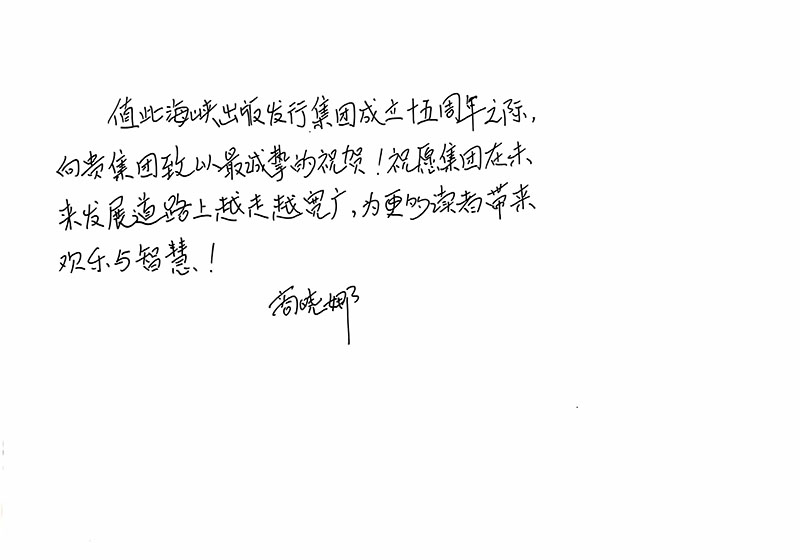 值此海峡出版发行集团成立十五周年之际,
向贵集团致以最诚挚的祝贺！祝愿集团在未
来发展道路上越走越宽广,为更多读者带来
欢乐与智慧！
商晓娜